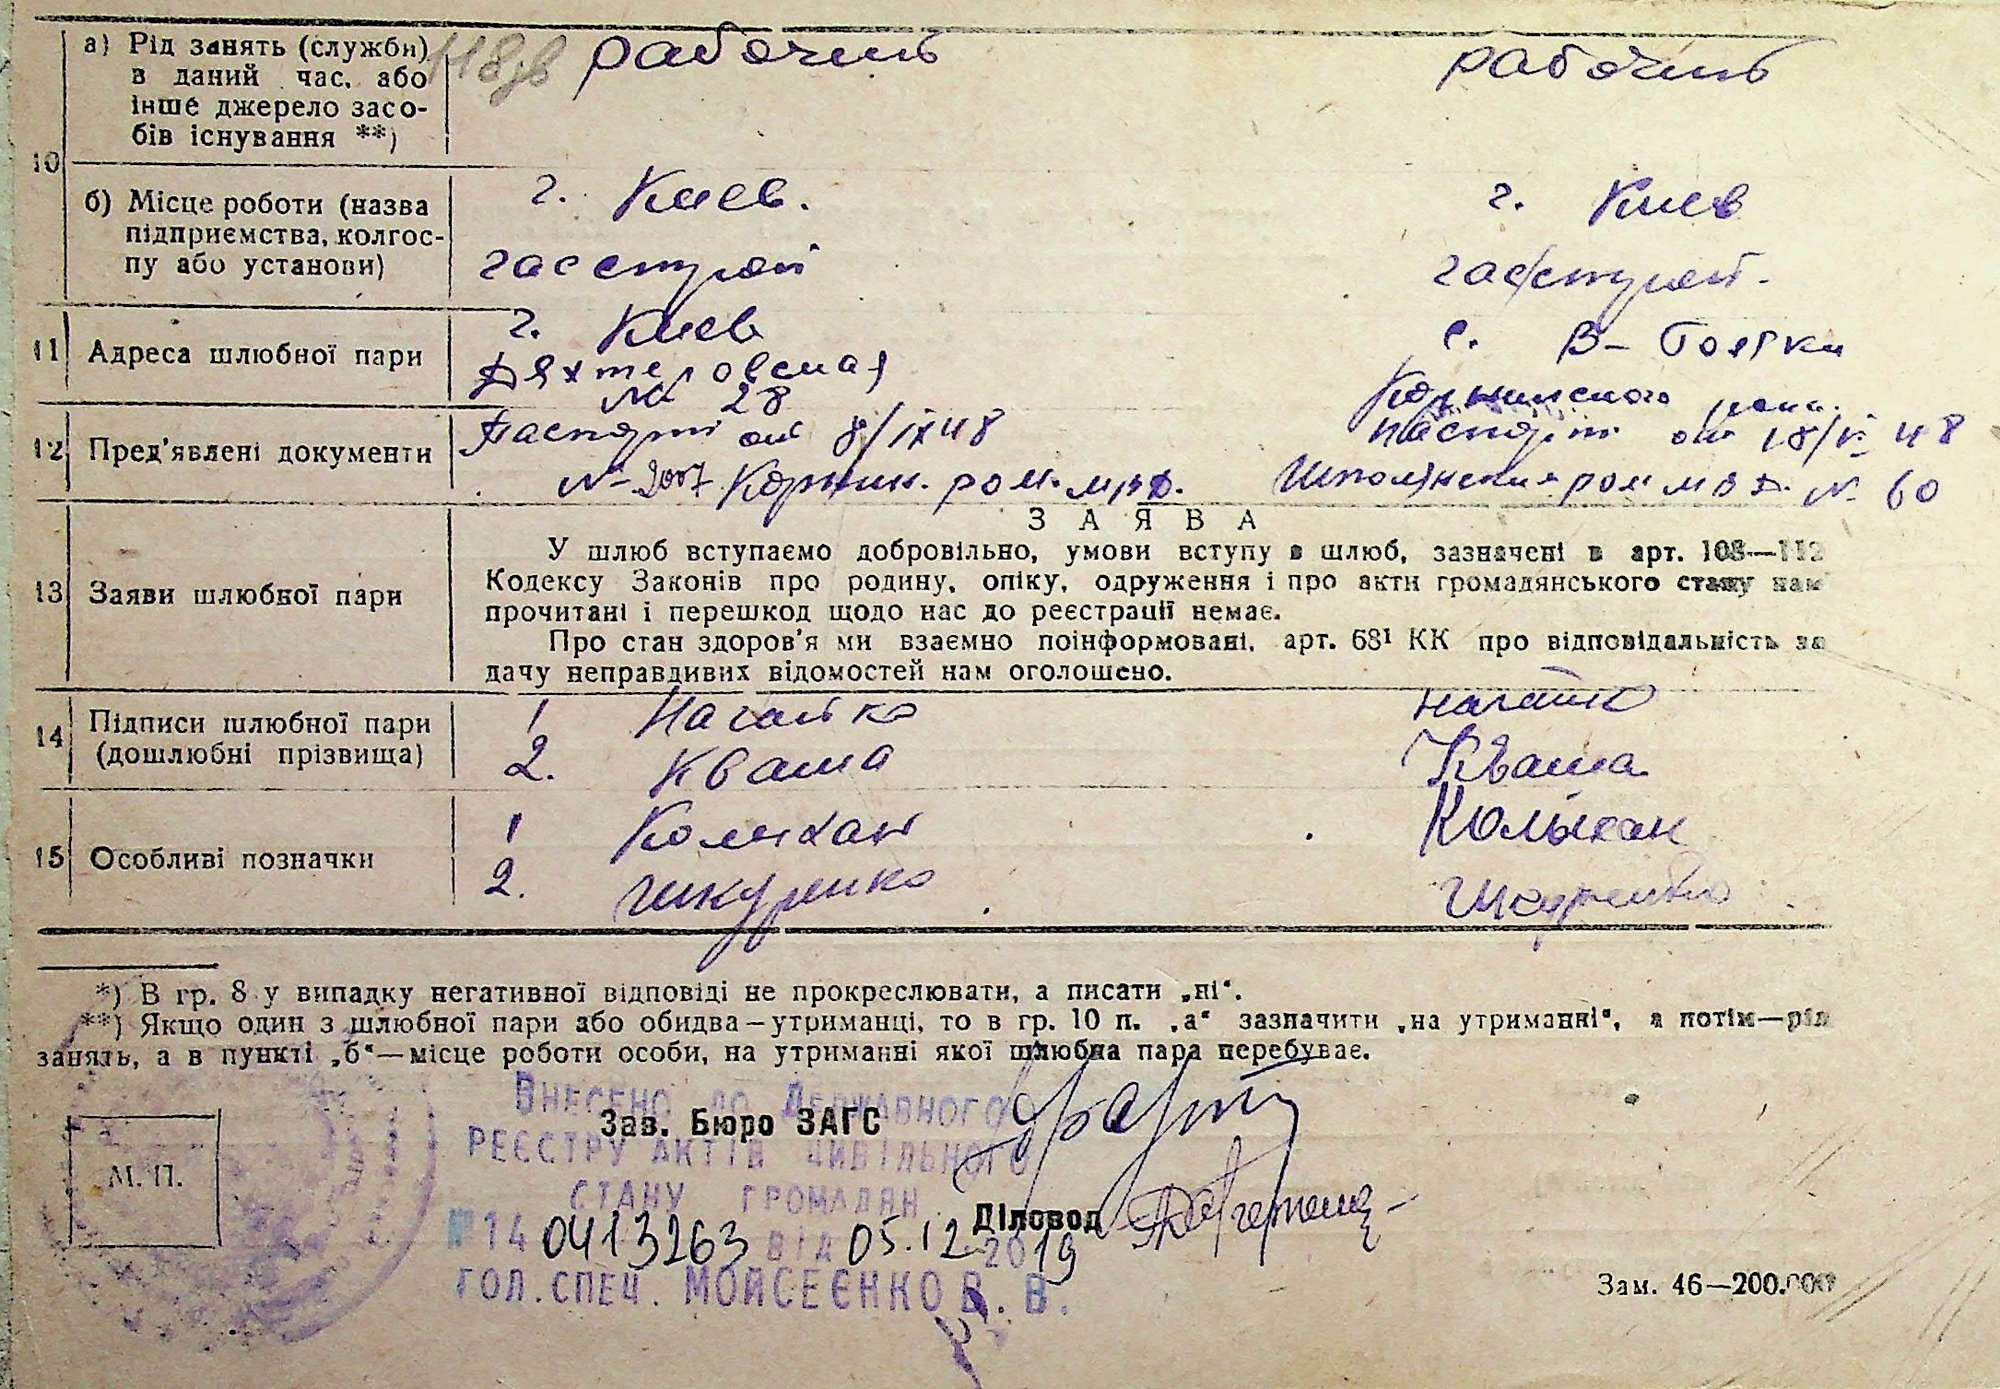 а) Рід занять (служби) в даний час, або інше джерело засобів існування **)
рабочий
рабочий
10
б) Місце роботи (назва підприємства, колгоспу або установи)
г. Киев.
г. Киев
11 Адреса шлюбної пари
г. Киев
с. В-
№ 28
12 Пред'явлені документи
Паспорт от 8/IX 48
Паспорт от 18/ 48
№ 2007
№ 60
ЗАЯВА
13 Заяви шлюбної пари
У шлюб вступаємо добровільно, умови вступу в шлюб, зазначені в арт. 108—112
Кодексу Законів про родину, опіку, одруження і про акти громадянського стану нам
прочитані і перешкод щодо нас до реєстрації немає.
Про стан здоров'я ми взаємно поінформовані, арт. 68¹ КК про відповідальність за
дачу неправдивих відомостей нам оголошено.
14 Підписи шлюбної пари (дошлюбні прізвища)
1 Нагайко
2. Кваша
Кваша
15 Особливі позначки
1
2.
*) В гр. 8 у випадку негативної відповіді не прокреслювати, а писати „ні“.
**) Якщо один з шлюбної пари або обидва—утриманці, то в гр. 10 п. „а“ зазначити „на утриманні“, а потім—рід
занять, а в пункті „б“—місце роботи особи, на утриманні якої шлюбна пара перебуває.
Внесено до Державного
Зав. Бюро ЗАГС
реєстру актів цивільного
М. П.
стану громадян
Діловод
№ 14 0413263 від 05.12 2019
Гол. спец. Мойсеєнко В. В.
Зам. 46—200.000